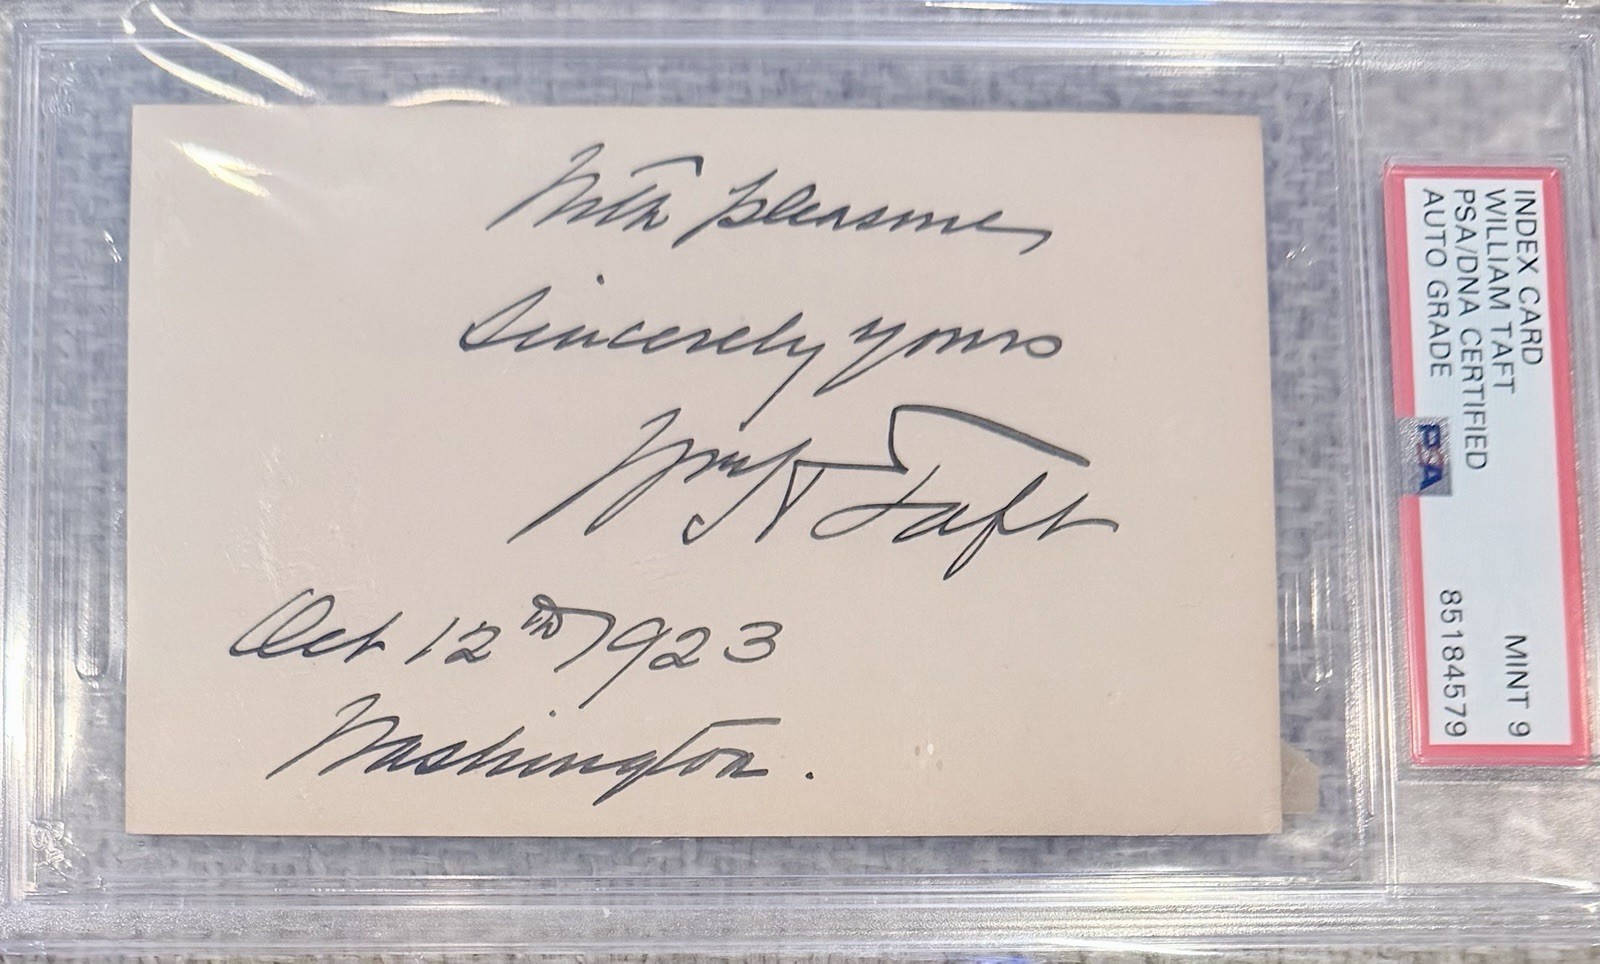 With pleasure,
Sincerely yours
Wm H Taft
Oct 12th 1923
Washington.
INDEX CARD
WILLIAM TAFT
PSA/DNA CERTIFIED
AUTO GRADE
MINT 9
85184579
PSA